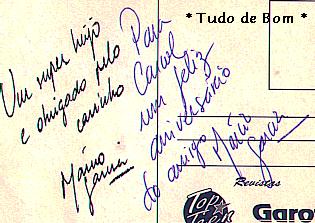 * Tudo de Bom *
Um super beijo
e obrigado pelo
carinho
Mário
Para
Carol
um feliz
aniversário
do amigo Mário
Revistas
Top
Garo